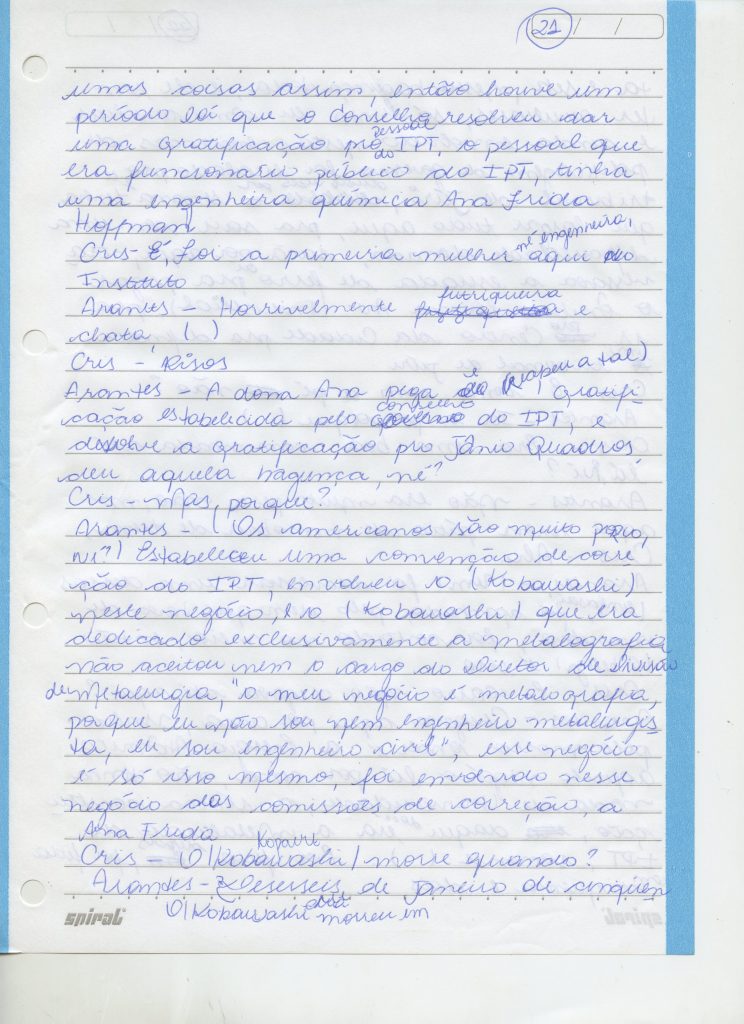 21 / /
umas coisas assim, então houve um
período lá que o Conselho resolveu dar
uma gratificação pro pessoal do IPT, o pessoal que
era funcionário público do IPT, tinha
uma engenheira química Ana Frida
Hoffman
Cris- É, foi a primeira mulher né engenheira, aqui no
Instituto
Arantes - Horrivelmente futriqueira e
chata ( )
Cris - Risos
Arantes - A dona Ana pega e (rapeu a tal) gratifi
cação estabelecida pelo conselho do IPT, e
dissolve a gratificação pro Jânio Quadros,
deu aquela bagunça, né?
Cris - Mas, porque?
Arantes - (Os americanos são muito
né?) Estabeleceu uma convenção de corre
ção do IPT, envolveu o (Kobawashi)
neste negócio, e o (Kobawashi) que era
dedicado exclusivamente a metalografia
não aceitou nem o cargo do Diretor de Divisão
de Metalurgia, "o meu negócio é metalografia,
porque eu não sou nem engenheiro metalurgis
ta, eu sou engenheiro civil", esse negócio
é só isso mesmo, foi envolvido nesse
negócio das comissões de correção, a
Ana Frida
Cris - O (Kobawashi) morre quando?
Arantes - Dezesseis, de janeiro de cinquen
O (Kobawashi morreu em
spiral